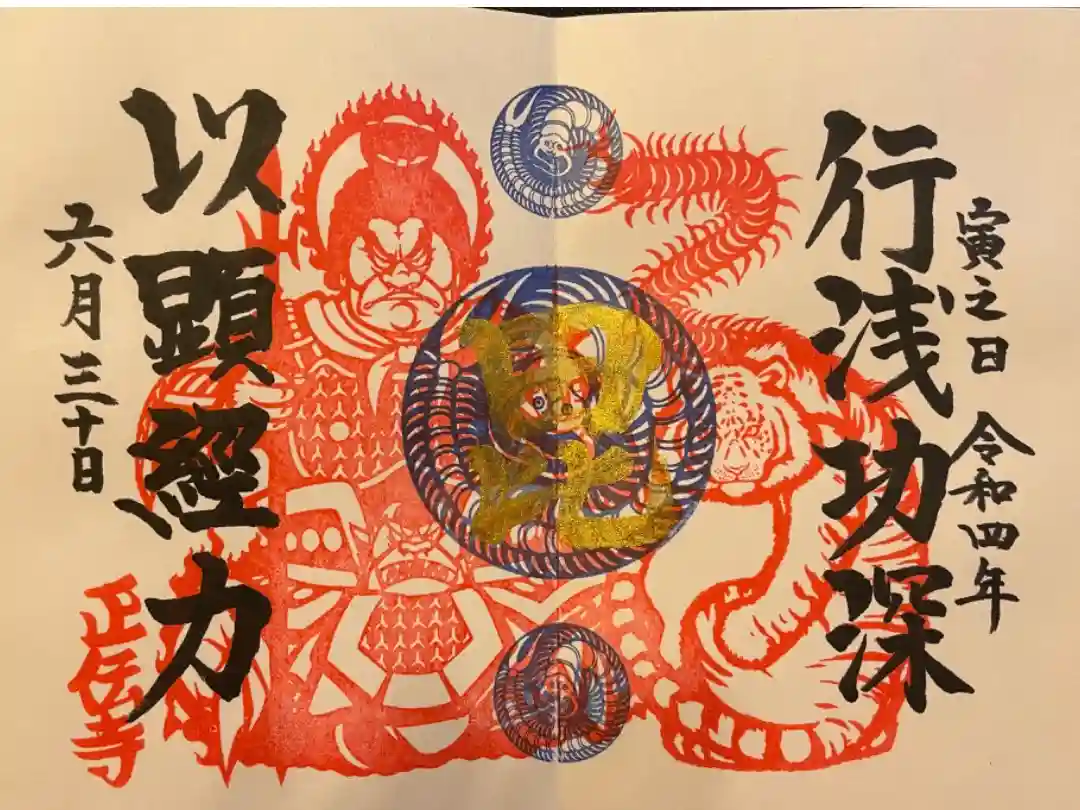 寅之日 令和四年
行浅功深
毘沙
以顕經力
六月三十日
正伝寺